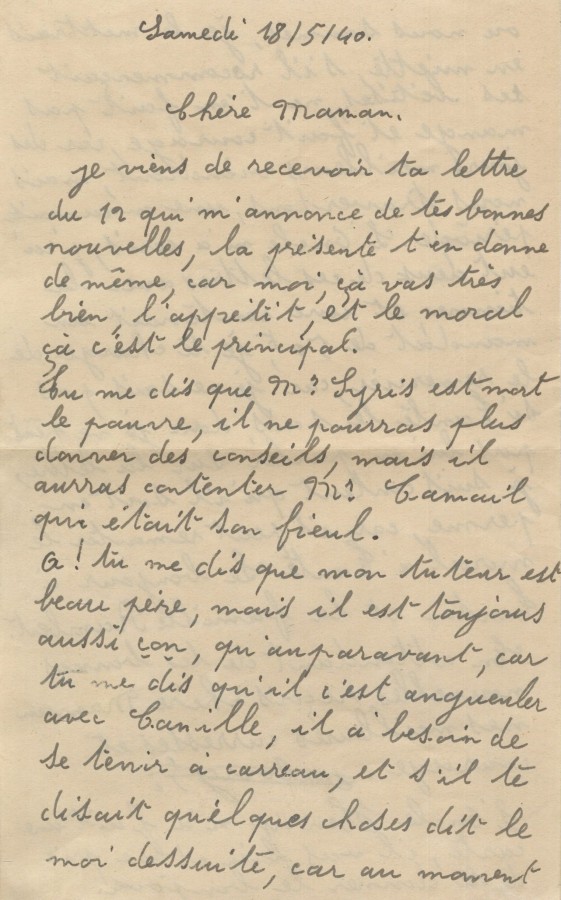 Samedi 18/5/40.
Chère Maman.
je viens de recevoir ta lettre
du 12 qui m'annonce de tes bonnes
nouvelles, la présente t'en donne
de même, car moi, çà vas très
bien, l'appétit, et le moral
çà c'est le principal.
Tu me dis que Mr Syris est mort
le pauvre, il ne pourras plus
donner des conseils, mais il
aurras contenter Mr Camail
qui était son fieul.
A! tu me dis que mon tuteur est
beau père, mais il est toujours
aussi çon, qu'anparavant, car
tu me dis qu'il c'est angueuler
avec Camille, il à besoin de
se tenir à carreau, et s'il te
disait quélques choses dit le
moi dessuite, car au moment